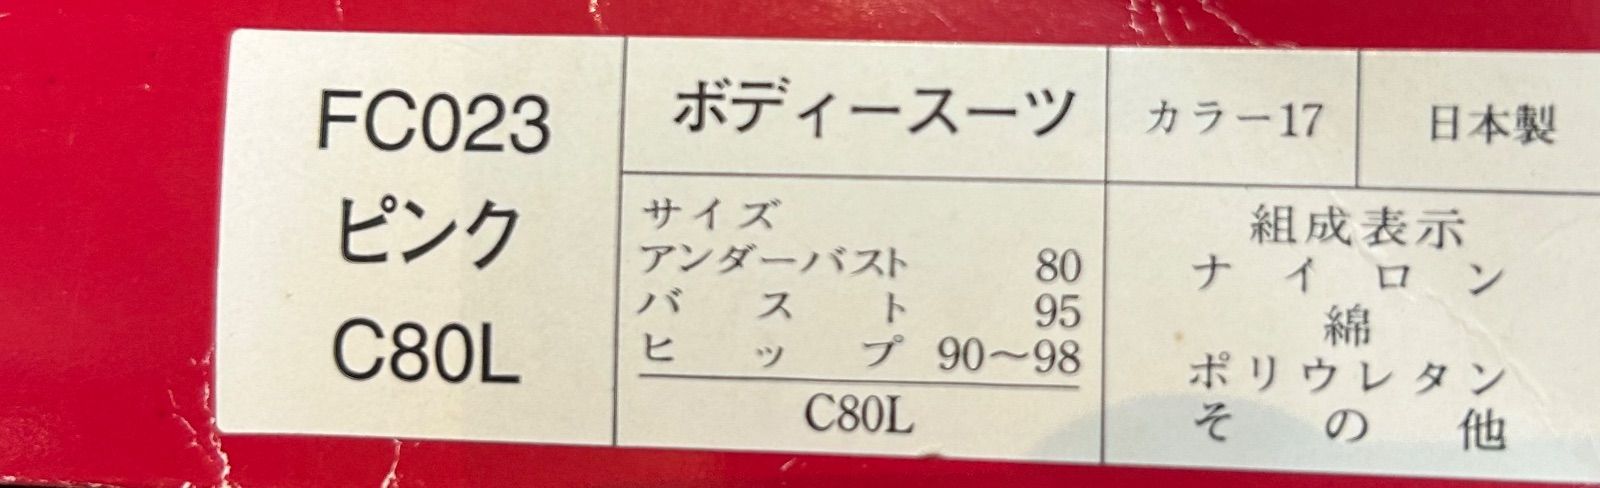 FC023
ピンク
C80L
ボディースーツ
サイズ
アンダーバスト 80
バスト 95
ヒップ 90〜98
C80L
カラー17
日本製
組成表示
ナイロン
綿
ポリウレタン
その他